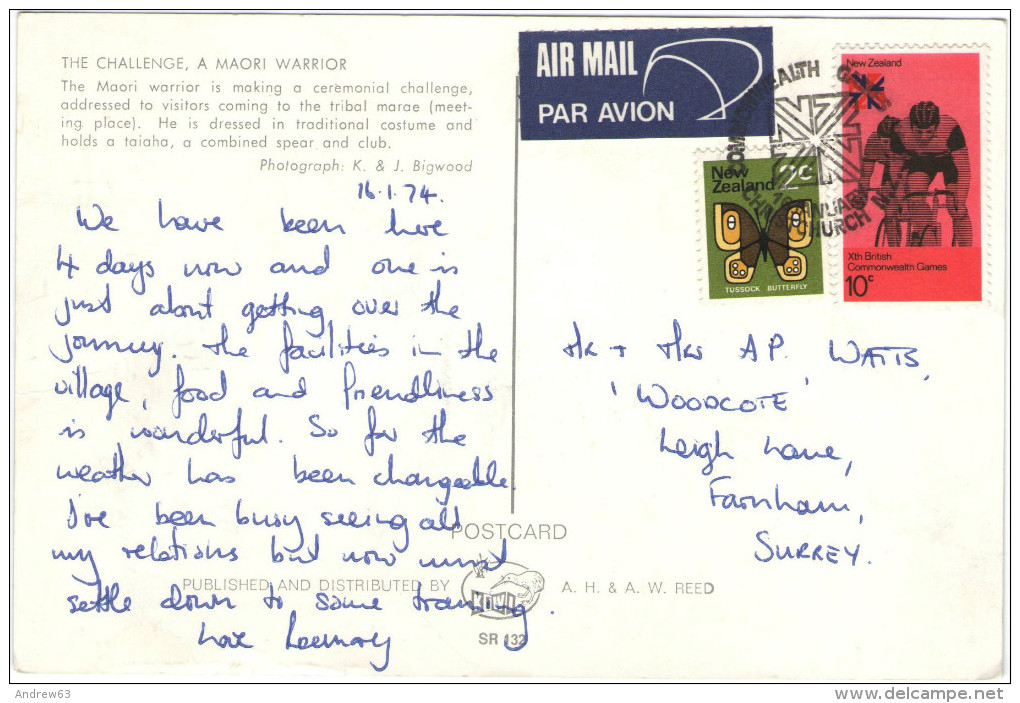 THE CHALLENGE, A MAORI WARRIOR
The Maori warrior is making a ceremonial challenge,
addressed to visitors coming to the tribal marae (meet-
ing place). He is dressed in traditional costume and
holds a taiaha, a combined spear and club.
Photograph: K. & J. Bigwood
16.1.74.
We have been here
4 days now and one is
just about getting over the
journey. The facilities in the
village, food and friendliness
is wonderful. So far the
weather has been changeable.
I've been busy seeing all
my relations but now must
settle down to some training.
Love Rosemary
AIR MAIL
PAR AVION
COMMONWEALTH GAMES
JANUARY
CHRISTCHURCH N.Z.
New
Zealand 2c
TUSSOCK BUTTERFLY
New Zealand
Xth British
Commonwealth Games
10c
Mr + Mrs A.P. WATTS,
'WOODCOTE'
Leigh Lane,
Farnham,
SURREY.
POSTCARD
PUBLISHED AND DISTRIBUTED BY
KIWI
A. H. & A. W. REED
SR 132
Andrew63
www.delcampe.net